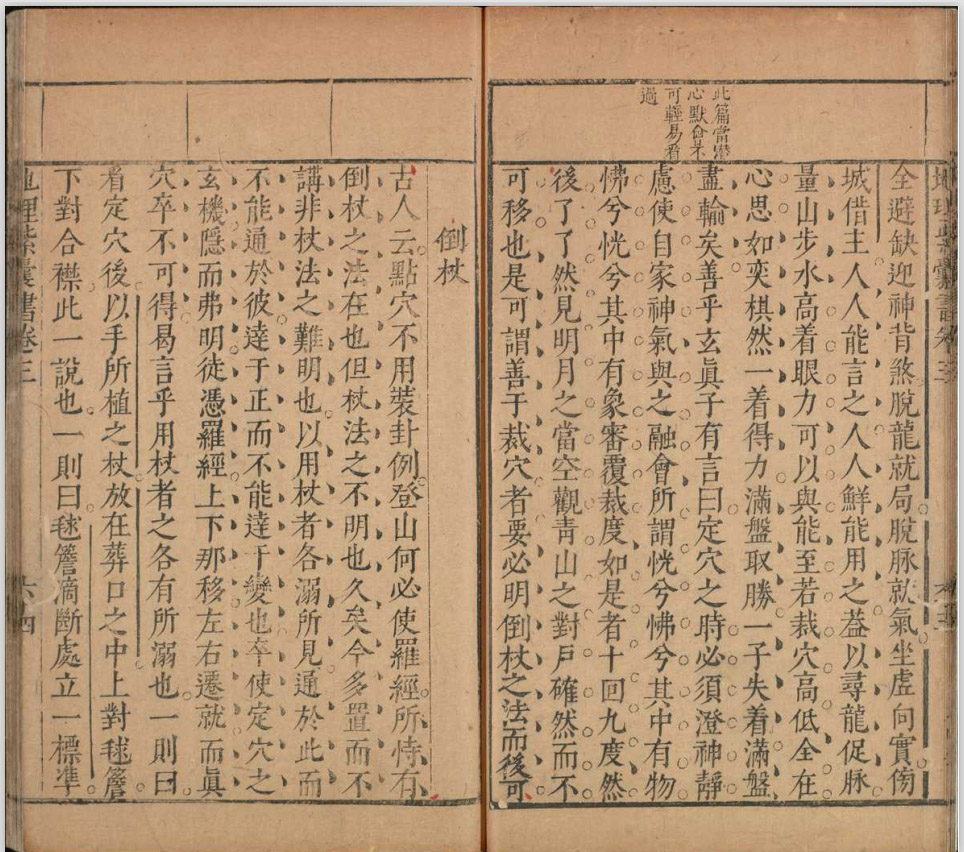 此篇當潛
心默會不
可輕易看
過
全避缺迎神背煞脫龍就局脫脉就氣坐虛向實傍
城借主人人能言之人人鮮能用之蓋以尋龍促脉
量山步水高着眼力可以與能至若裁穴高低全在
心思如奕棋然一着得力滿盤取勝一子失着滿盤
盡輸矣善乎玄眞子有言曰定穴之時必須澄神靜
慮使自家神氣與之融會所謂恍兮怫兮其中有物
怫兮恍兮其中有象審覆裁度如是者十回九度然
後了了然見明月之當空觀靑山之對戶確然而不
可移也是可謂善于裁穴者要必明倒杖之法而後可
倒杖
古人云點穴不用裝卦例登山何必使羅經所恃有
倒杖之法在也但杖法之不明也久矣今多置而不
講非杖法之難明也以用杖者各溺所見通於此而
不能通於彼達于正而不能達于變也卒使定穴之
玄機隱而弗明徒憑羅經上下那移左右遷就而眞
穴卒不可得曷言乎用杖者之各有所溺也一則曰
看定穴後以手所植之杖放在葬口之中上對毬簷
下對合襟此一說也一則曰毬簷滴斷處立一標準
地理紫囊書卷三
六四